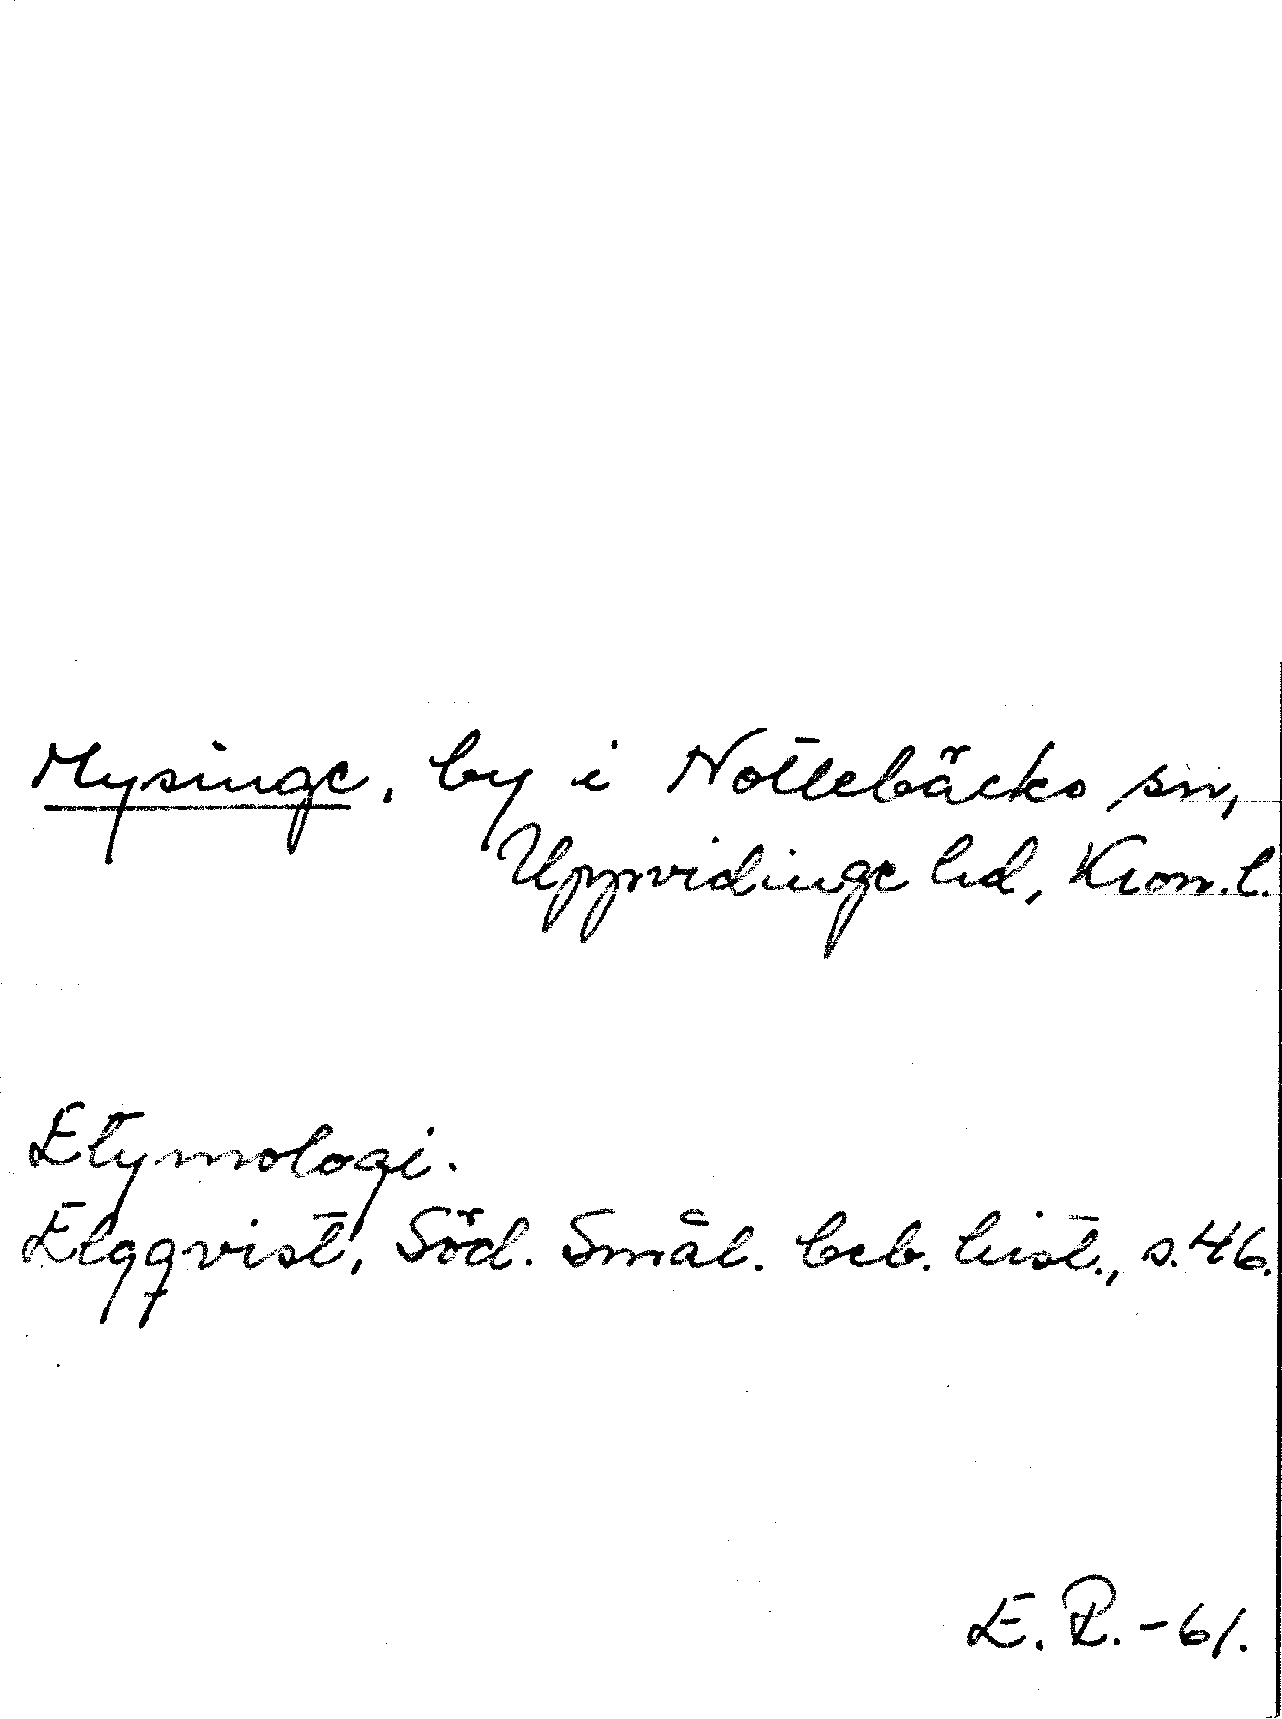 Mysinge, by i Nottebäcks sn,
Uppvidinge hd, Kron. l.
Etymologi.
Elgqvist, Söd. Smål. beb. hist., s. 46.
E. R. -61.